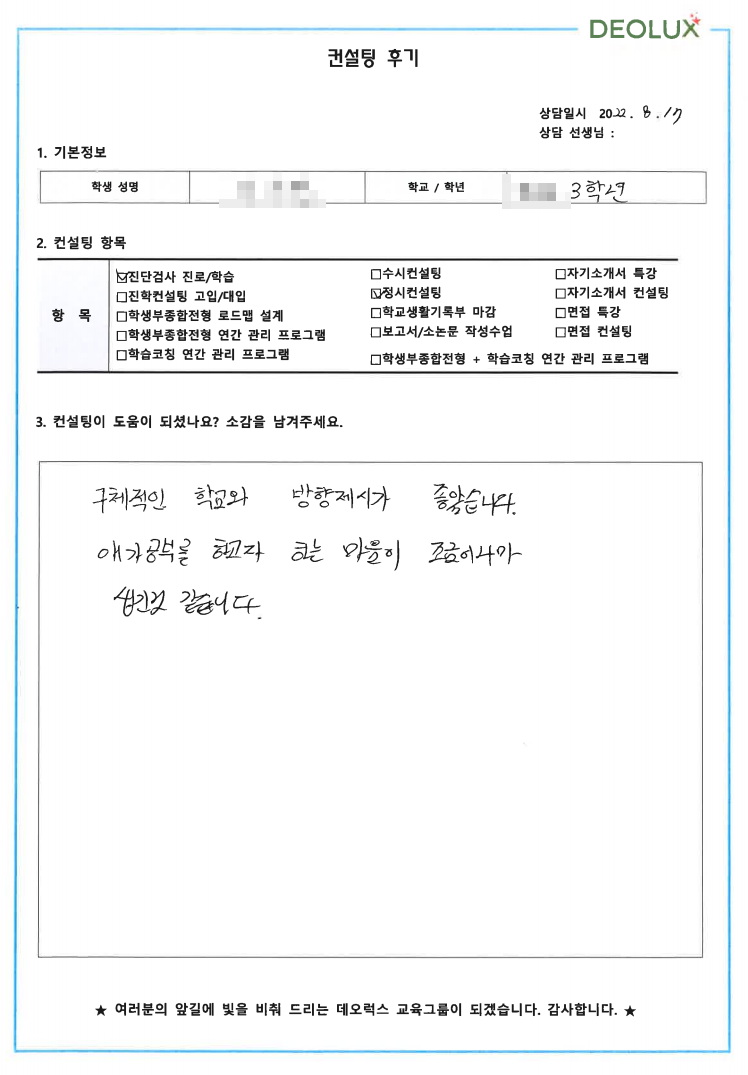 DEOLUX
컨설팅 후기
상담일시 2022. 8. 17
상담 선생님 :
1. 기본정보
학생 성명 학교 / 학년 3학년
2. 컨설팅 항목
항 목
☑진단검사 진로/학습 □수시컨설팅 □자기소개서 특강
□진학컨설팅 고입/대입 ☑정시컨설팅 □자기소개서 컨설팅
□학생부종합전형 로드맵 설계 □학교생활기록부 마감 □면접 특강
□학생부종합전형 연간 관리 프로그램 □보고서/소논문 작성수업 □면접 컨설팅
□학습코칭 연간 관리 프로그램 □학생부종합전형 + 학습코칭 연간 관리 프로그램
3. 컨설팅이 도움이 되셨나요? 소감을 남겨주세요.
구체적인 학교와 방향제시가 좋았습니다.
애가공부를 하고자 하는 마음이 조금이나마
생긴것 같습니다.
★ 여러분의 앞길에 빛을 비춰 드리는 데오럭스 교육그룹이 되겠습니다. 감사합니다. ★